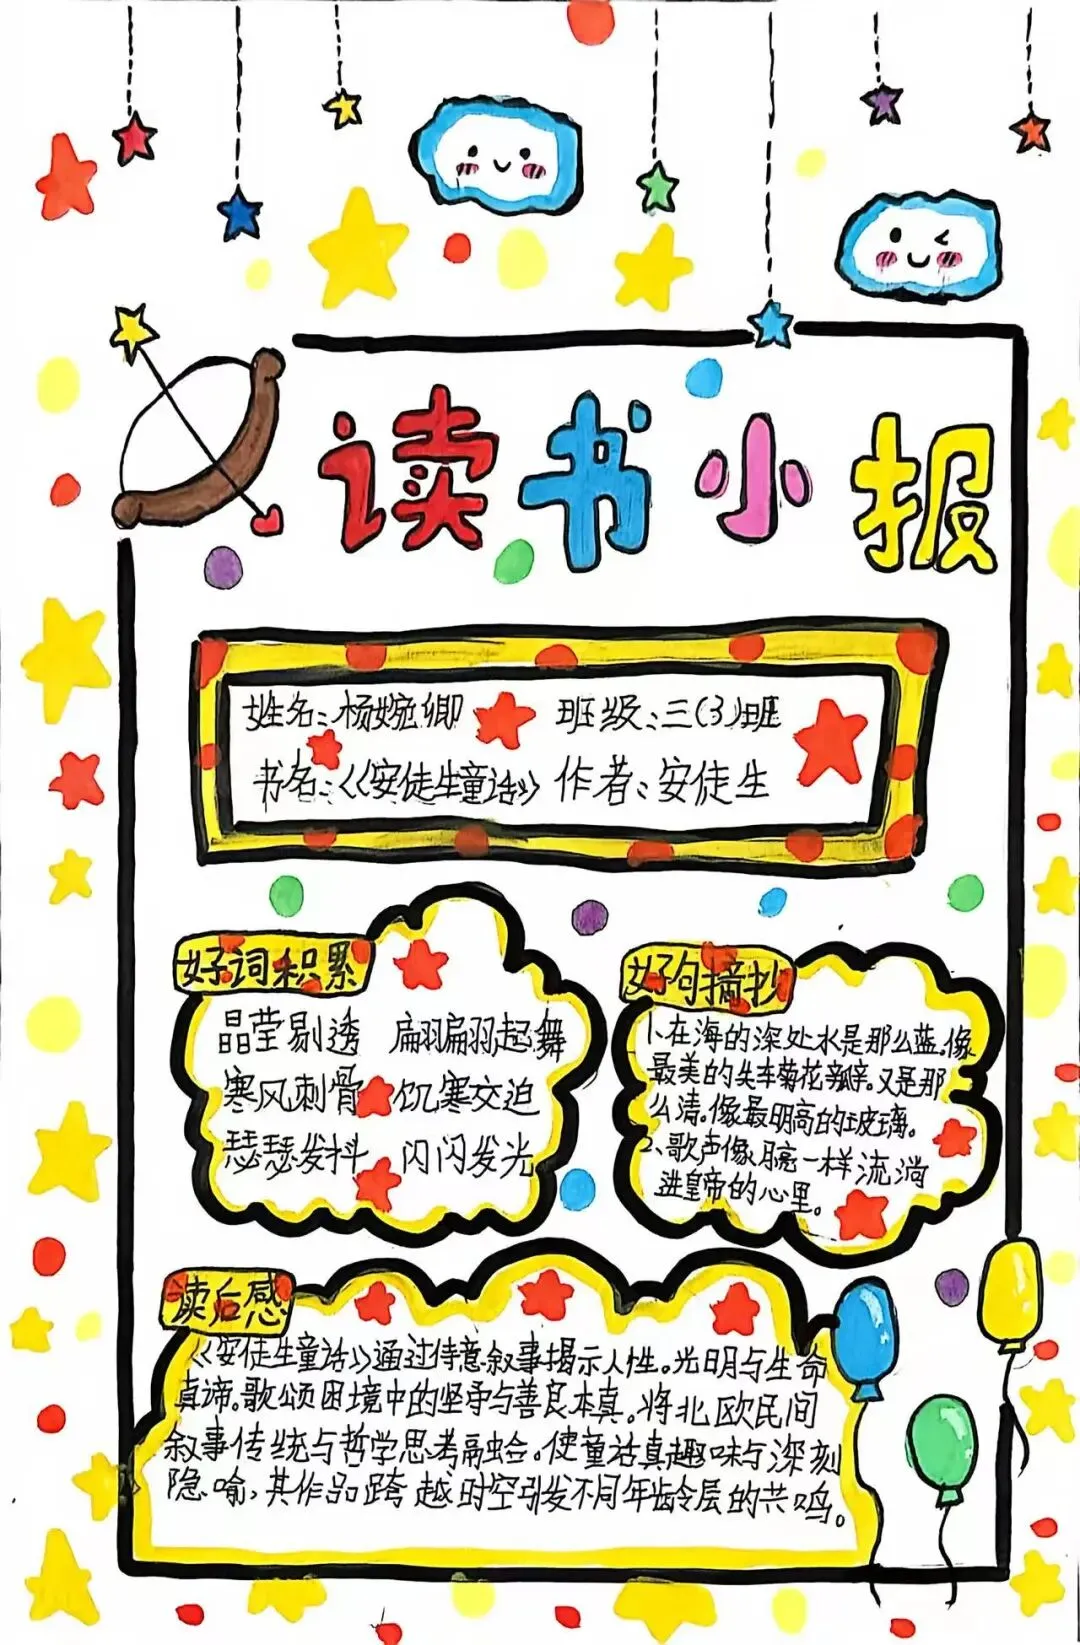 读书小报
姓名:杨婉卿 班级:三(3)班
书名:《安徒生童话》 作者:安徒生
好词积累
晶莹剔透 翩翩起舞
寒风刺骨 饥寒交迫
瑟瑟发抖 闪闪发光
好句摘抄
1.在海的深处水是那么蓝.像
最美的失车菊花瓣.又是那
么清.像最明亮的玻璃。
2、歌声像 一样流淌
进皇帝的心里。
读后感
《安徒生童话》通过诗意叙事揭示人性。光明与生命
真谛。歌颂困境中的坚争与善良本真。将北欧民间
叙事传统与哲学思考融合。使童话真趣味与深刻
隐喻,其作品跨越时空引发不同年龄层的共鸣。